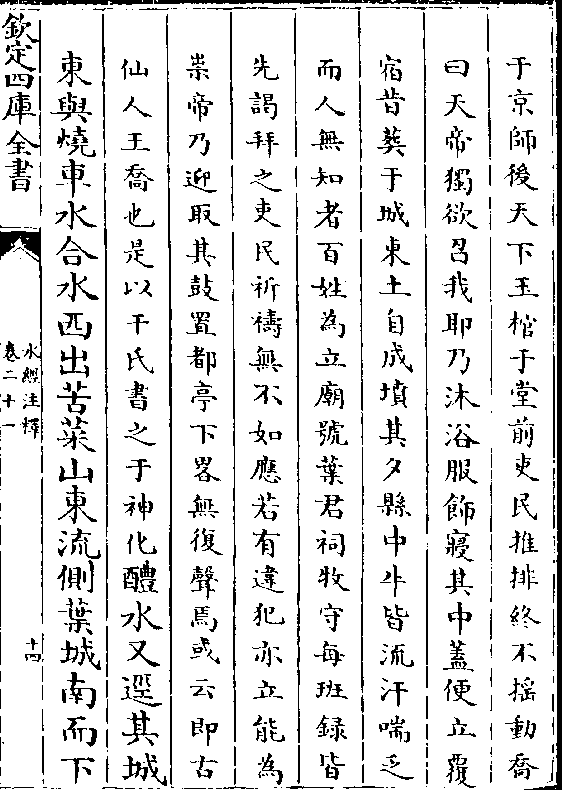 于京師後天下玉棺于堂前吏民推排終不揺動喬
曰天帝獨欲召我耶乃沐浴服飾寢其中蓋便立覆
宿昔葬于城東土自成墳其夕縣中牛皆流汗喘乏
而人無知者百姓為立廟號葉君祠牧守每班録皆
先謁拜之吏民祈禱無不如應若有違犯亦立能為
祟帝乃迎取其鼓置都亭下畧無復聲焉或云即古
仙人王喬也是以干氏書之于神化醴水又逕其城
東與燒車水合水西出苦菜山東流側葉城南而下
欽定四庫全書
水經注釋
卷二十一
十四